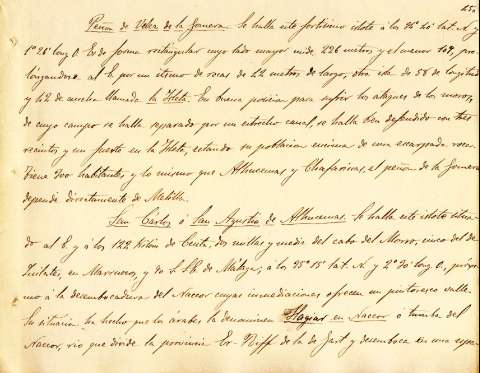 Peñon de Velez de la Gomera. Se halla este fortísimo islote á los 35° 20' lat. N. y
1° 28' long O. Es de forma rectangular cuyo lado mayor mide 226 metros y el menor 109, pro-
longándose al E. por un istmo de rocas de 22 metros de largo, otra isla de 58 de longitud
y 42 de ancho llamada la Isleta. En buena posicion para sufrir los ataques de los moros,
de cuyo campo se halla separado por un estrecho canal, se halla bien defendido con tres
recintos y un fuerte en la Isleta, estando su poblacion encima de una escarpada roca.
Tiene 300 habitantes y lo mismo que Alhucemas y Chafarinas, el peñon de la Gomera
depende directamente de Melilla.
San Carlos ó San Agustin de Alhucemas. Se halla este islote situa-
do al E. y á los 122 kilóm de Ceuta, dos millas y media del cabo del Morro, cinco del de
en Marruecos, y 30 de Málaga, á los 35° 15' lat. N. y 2° 30' long O., próxi-
mo á la desembocadura del Naccor cuyas inmediaciones ofrecen un pintoresco valle.
Su situacion ha hecho que los árabes la denominen Hagiar en Naccor ó tumba del
Naccor, rio que divide la provincia Er-Riff de la de Gart y desemboca en una espa-